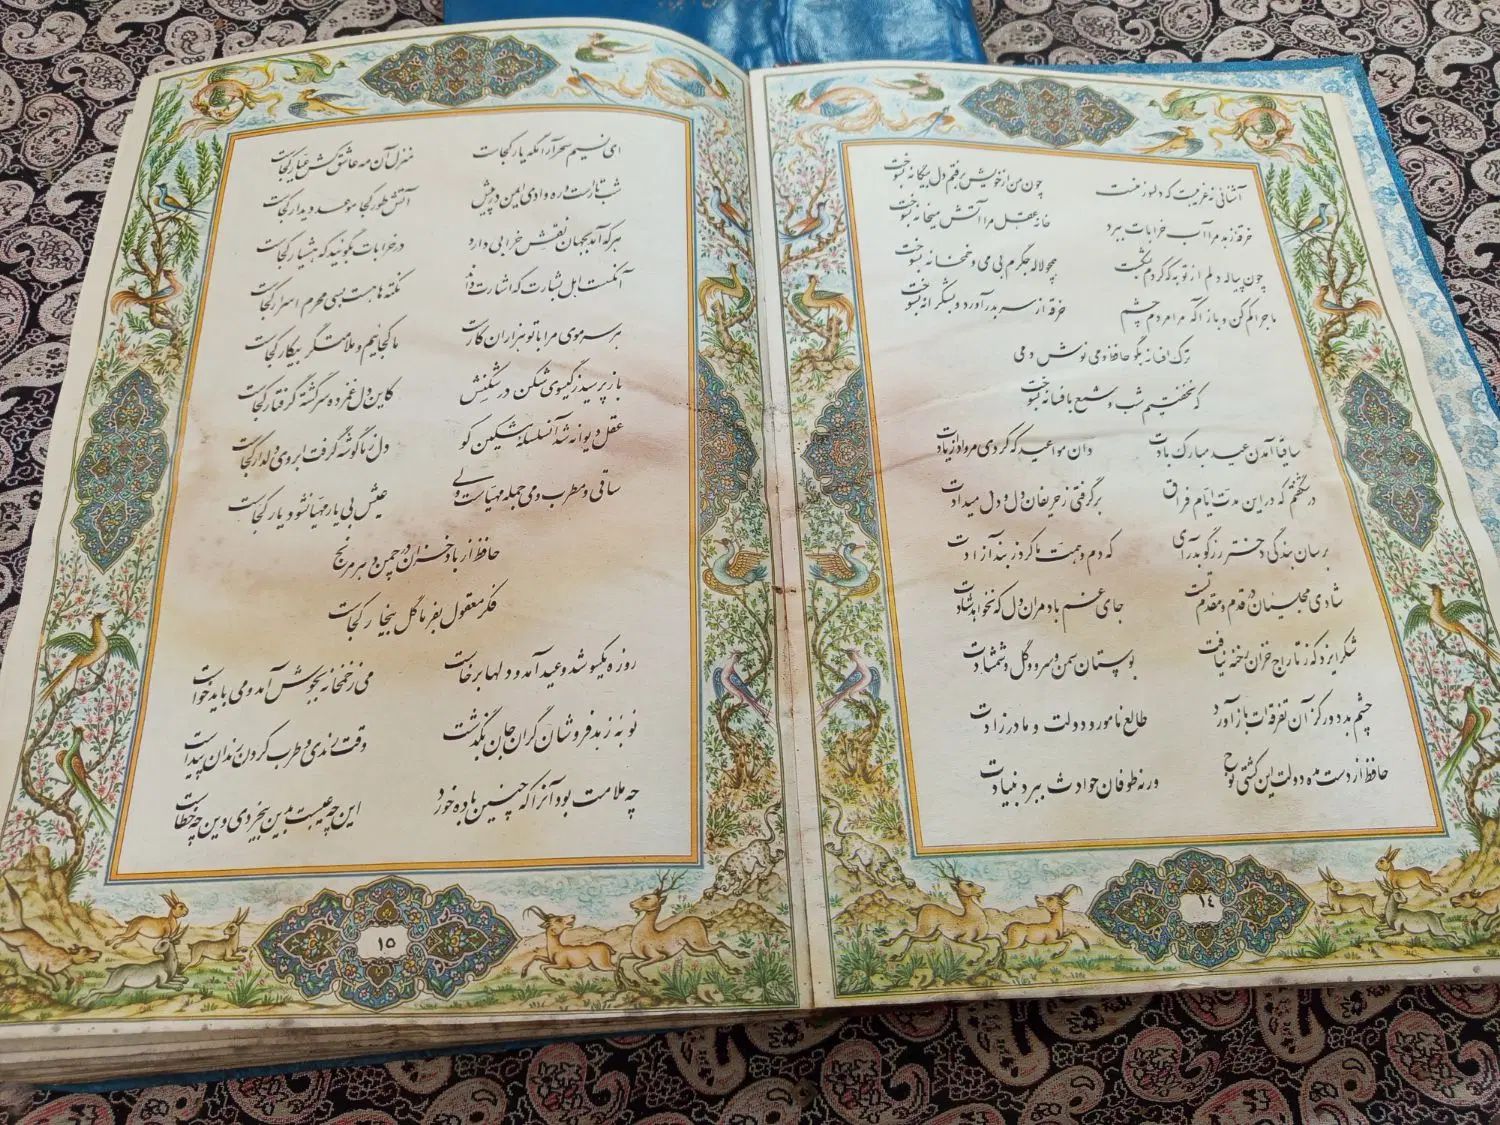 آشنائی نه غریبست که دلسوز منست چون من از خویش برفتم دل بیگانه بسوخت
خرقه زهد مرا آب خرابات ببرد خانه عقل مرا آتش میخانه بسوخت
چون پیاله دلم از توبه که کردم بشکست همچو لاله جگرم بی می و خمخانه بسوخت
ماجرا کم کن و باز آ که مرا مردم چشم خرقه از سر بدر آورد و بشکرانه بسوخت
ترک افسانه بگو حافظ و می نوش و می
که نخفتیم شب و شمع بافسانه بسوخت
ساقیا آمدن عید مبارک بادت وان مواعید که کردی مرواد از یادت
در شگفتم که در این مدت ایام فراق برگرفتی ز حریفان دل و دل میدادت
برسان بندگی دختر رز گو بدر آی که دم و همت ما کرد ز بند آزادت
شادی مجلسیان در قدم و مقدم تست جای غم باد مر آن دل که نخواهد شادت
شکر ایزد که ز تاراج خزان رخنه نیافت بوستان سمن و سرو و گل و شمشادت
چشم بد دور کز آن تفرقه‌ات باز آورد طالع نامور و دولت مادرزادت
حافظ از دست مده دولت این کشتی نوح ورنه طوفان حوادث ببرد بنیادت
۱٤
ای نسیم سحر آرامگه یار کجاست منزل آن مه عاشق کش عیار کجاست
شب تارست و ره وادی ایمن در پیش آتش طور کجا موعد دیدار کجاست
هر که آمد بجهان نقش خرابی دارد در خرابات بگوئید که هشیار کجاست
آنکست اهل بشارت که اشارت داند نکته ها هست بسی محرم اسرار کجاست
هر سر موی مرا با تو هزاران کارست ما کجائیم و ملامت گر بیکار کجاست
باز پرسید ز گیسوی شکن در شکنش کاین دل غمزده سرگشته گرفتار کجاست
عقل دیوانه شد آن سلسله مشکین کو دل ز ما گوشه گرفت ابروی دلدار کجاست
ساقی و مطرب و می جمله مهیاست ولی عیش بی یار مهیا نشود یار کجاست
حافظ از باد خزان در چمن دهر مرنج
فکر معقول بفرما گل بیخار کجاست
روزه یکسو شد و عید آمد و دلها برخاست می ز خمخانه بجوش آمد و می باید خواست
نوبه زهدفروشان گران جان بگذشت وقت رندی و طرب کردن رندان پیداست
چه ملامت بود آنرا که چنین باده خورد این چه عیبست بدین بیخردی وین چه خطاست
۱٥